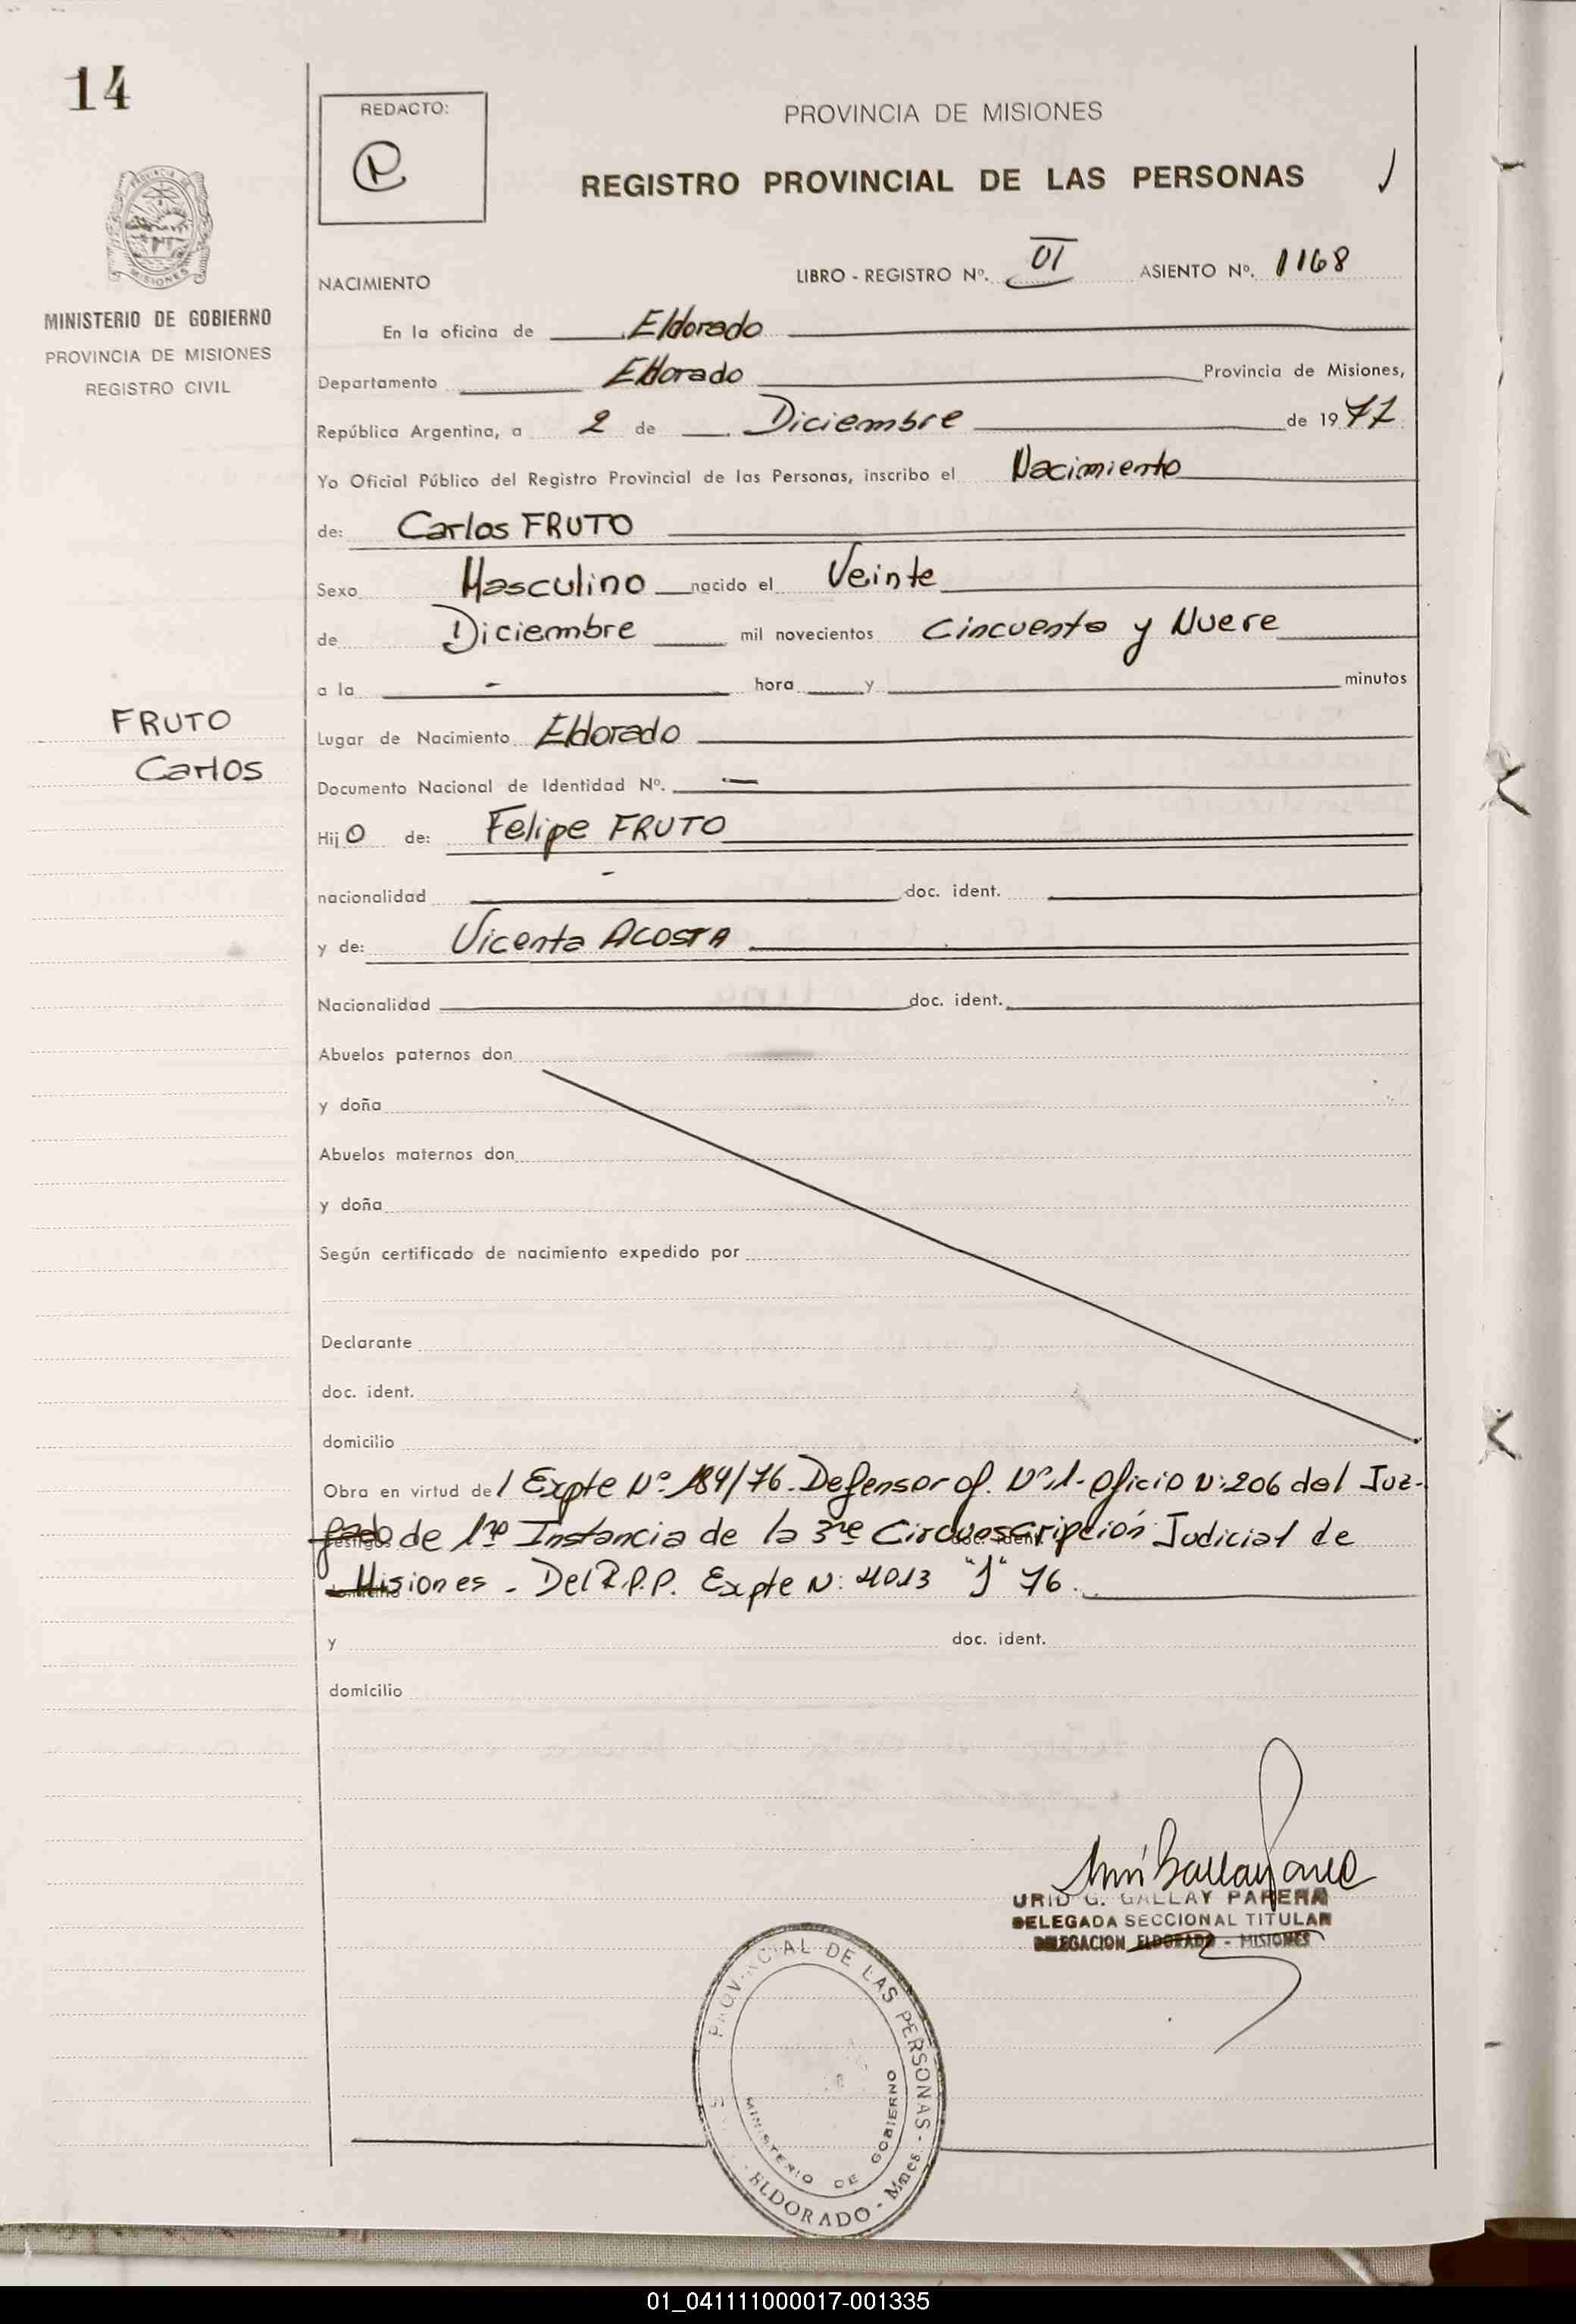 14
REDACTO:
PROVINCIA DE MISIONES
REGISTRO PROVINCIAL DE LAS PERSONAS
PROVINCIA DE
MISIONES
MINISTERIO DE GOBIERNO
PROVINCIA DE MISIONES
REGISTRO CIVIL
NACIMIENTO LIBRO - REGISTRO Nº. VI ASIENTO Nº. 1168
En la oficina de Eldorado
Departamento Eldorado Provincia de Misiones,
República Argentina, a 2 de Diciembre de 1977
Yo Oficial Público del Registro Provincial de las Personas, inscribo el Nacimiento
de: Carlos FRUTO
Sexo Masculino nacido el Veinte
de Diciembre mil novecientos Cincuenta y Nueve
a la - hora y minutos
FRUTO
Carlos
Lugar de Nacimiento Eldorado
Documento Nacional de Identidad Nº. —
Hijo de: Felipe FRUTO
nacionalidad - doc. ident.
y de: Vicenta ACOSTA
Nacionalidad doc. ident.
Abuelos paternos don
y doña
Abuelos maternos don
y doña
Según certificado de nacimiento expedido por
Declarante
doc. ident.
domicilio
Obra en virtud del Expte Nº 184/76. Defensor of. Nº1- Oficio N:206 del Juz-
gado de 1ra Instancia de la 3ra Circunscripción Judicial de
Misiones - Del R.P.P. Expte N: 4013 "J" 76.
y doc. ident.
domicilio
URID G. GALLAY PARERA
DELEGADA SECCIONAL TITULAR
DELEGACION ELDORADO - MISIONES
PROVINCIAL DE LAS PERSONAS - ELDORADO - Mnes
MINISTERIO DE GOBIERNO
01_041111000017-001335